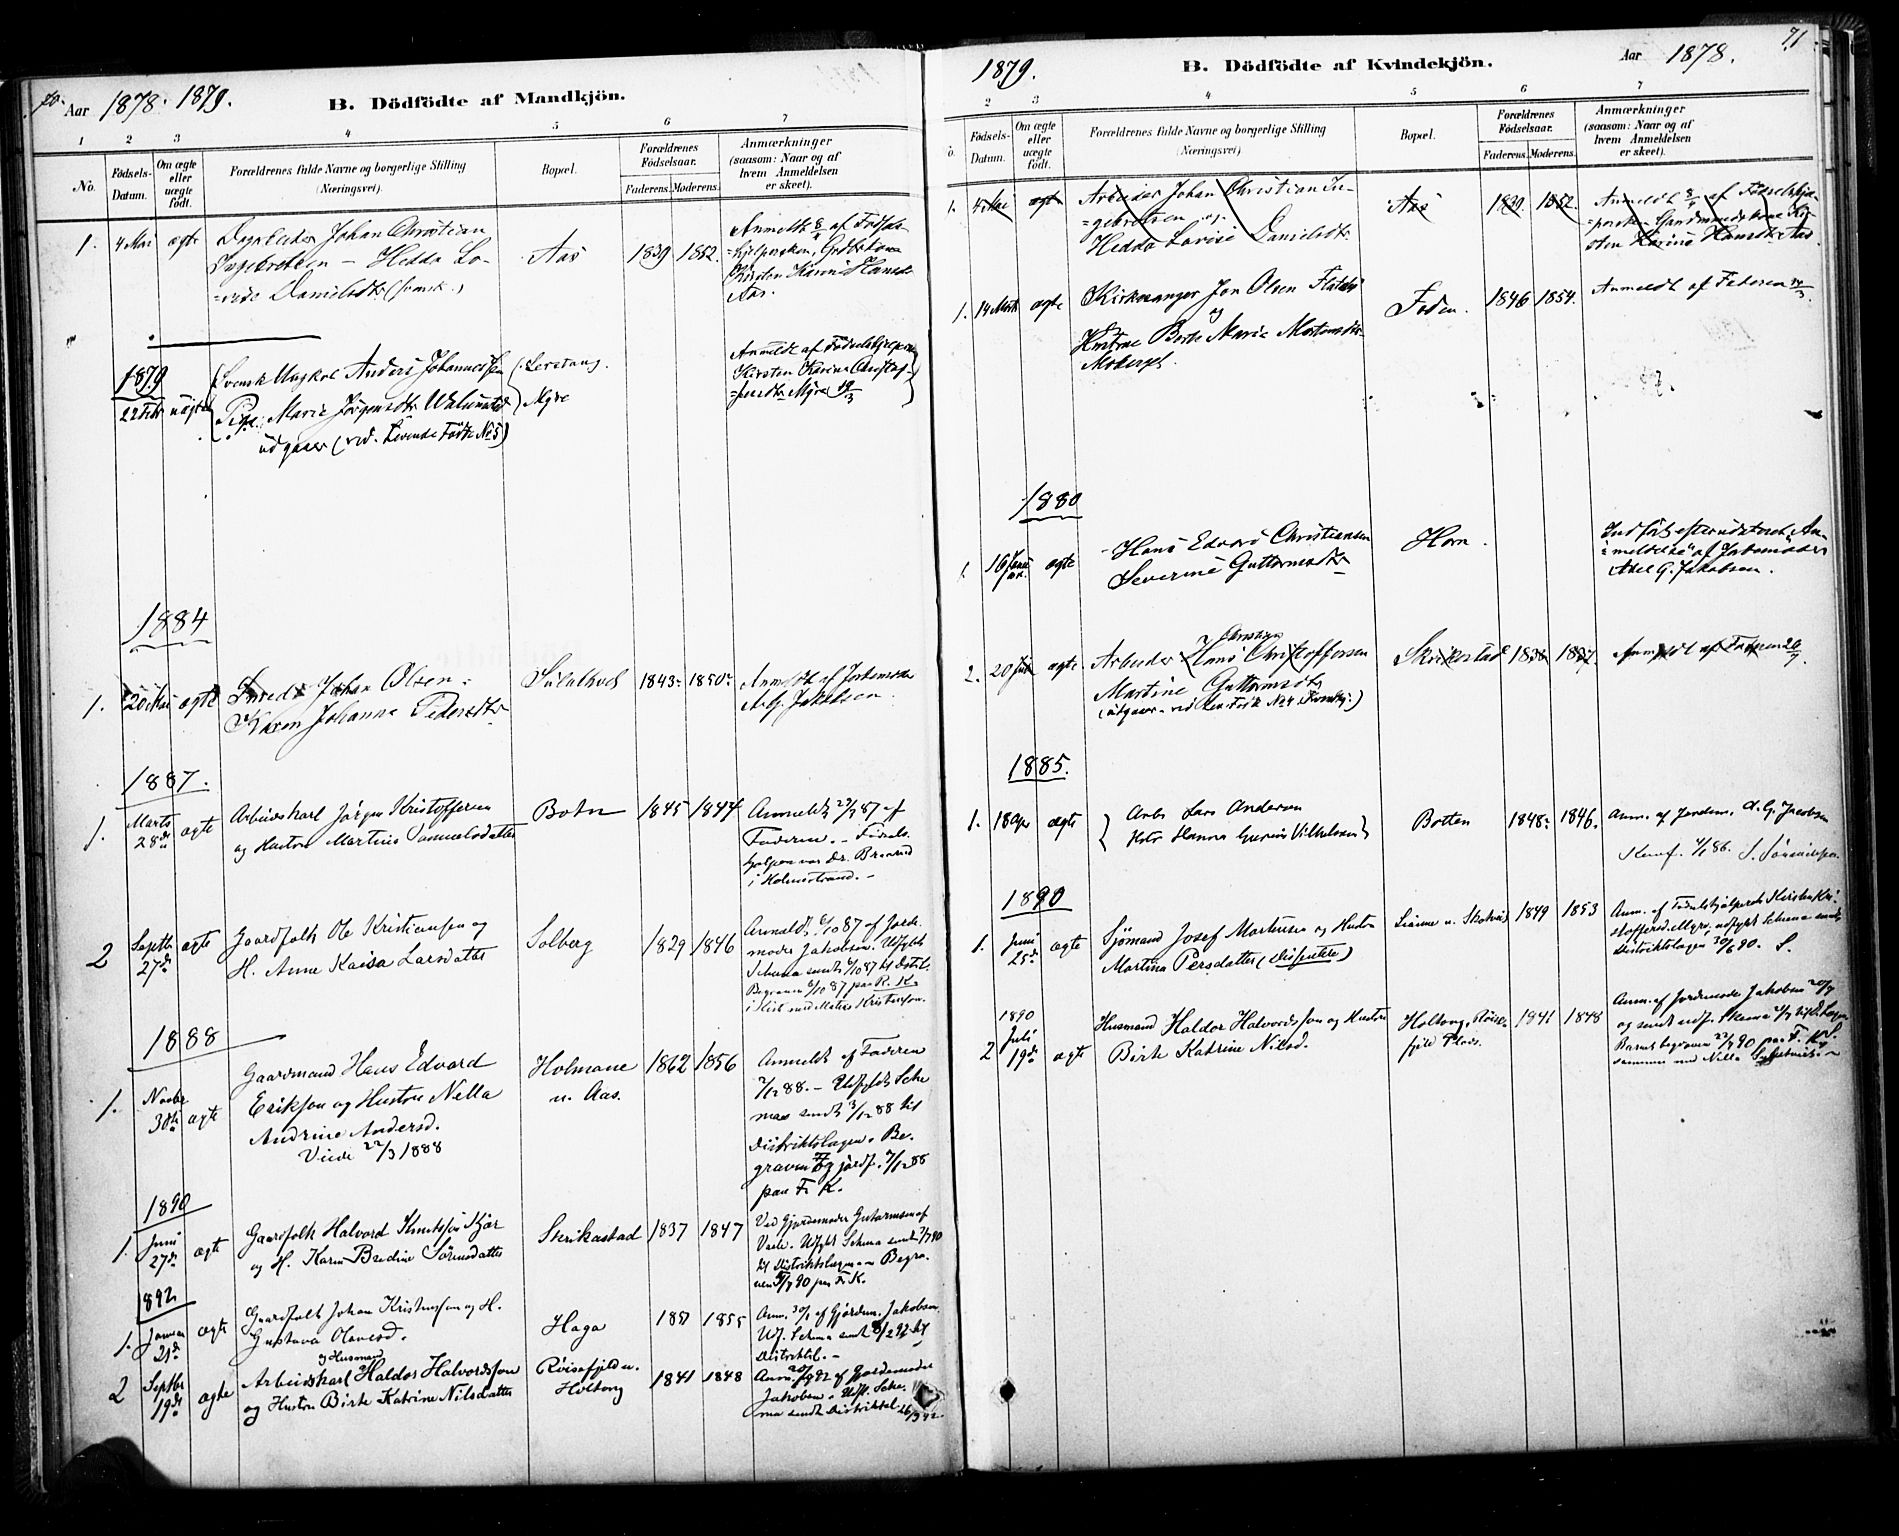 70.
Aar 1878. 1879.
B. Dödfödte af Mandkjön.
1 2 3 4 5 6 7
No.
Födsels-Datum.
Om ægte eller uægte födt.
Forældrenes fulde Navne og borgerlige Stilling
(Næringsvei)
Bopæl.
Forældrenes Födselsaar.
Faderens. Moderens.
Anmærkninger
(saasom: Naar og af
hvem Anmeldelsen
er skeet).
1. 4 Mai ægte Johan Christian
Ingebretsen – Hedda Lo-
Danielsdtr
Aas 1839 1852.
Anmeldt 8/5 af Fødsels-
hjelpersken
Karine Hansd.
Aas.
1879
22 Febr uægte Svensk Ungkarl Anders Johannessen
Pige Marie Jørgensdtr
udgaaer (ved. Levende Fødte No 5)
Myre
Anmeldt af
Kirsten Karine Christof-
Myre 19/3
1884
1. 20 Mai ægte Smed Johan Olsen
Karen Johanna Pedersdtr
1843 1850
Anmeldt af Jordemoder
A. G. Jakobsen
1887.
1. Marts 28de ægte Arbeidskarl Jörgen Kristoffersen
og Hustru Martine Samuelsdatter
Botn 1845 1844
Anmeldt 29/3 87 af
Faderen. – Födsels-
hjelper var Dr.
i Holmestrand. –
2 Septb. 27de ægte Gaardfolk Ole Kristiansen og
H. Anne Kaisa Larsdatter
Solberg 1829 1846
Anmeldt 6/10 87 af Jorde-
moder Jakobsen. Udfyldt
Schema sendt 6/10 87 til Distril.
Begraven 6/10 87 paa R. K.
1888
1. Novbr 30te ægte Gaardmand Hans Edvard
Eriksen og Hustru Nella
Andrine Andersd.
Viede 22/3 1888
Holmane
u. Aas. 1862 1856
Anmeldt af Faderen
7/12 88. – Udfyldt Sche
maer sendt 3/12 88 til
Distriktslægen. Be-
graven og jordf. 7/12 88
paa F. K.
1890
1. Juni 27de ægte Gaardfolk Halvord Knutssön Kjær
og H. Karen Bredine Sörensdatter
Skrikestad 1837 1847
Ved Gjordemoder Gutormsen af
Vaale. Udfyldt Schema sendt 7/7 90
til Distriktslægen – Begra-
ven 5/7 90 paa F. K.
1892
1. Januar 21de ægte Gaardfolk Johan Kristiansen og H.
Gustava Olavesd.
Haga 1851 1855
Anm. 30/1 af Gjordem. Jakobsen.
Udf. Schema sendt 8/2 92 til
Distriktsl. –
og Husmand
2 Septbr 19de ægte Arbeidskarl Haldor Halvordsson
og Hustru Birte Katrine Nilsdatter
Röisefjeld u.
Holtung 1841 1848
Anm. 20/9 92 af Gjordemoder
Jakobsen. Udf. Sche-
ma sendt Distriktsl. 26/9 92.
71
1879.
B. Dödfödte af Kvindekjön.
Aar 1878.
2 3 4 5 6 7
Födsels-Datum.
Om ægte eller uægte födt.
Forældrenes fulde Navne og borgerlige Stilling
(Næringsvei)
Bopæl.
Forældrenes Födselsaar.
Faderens. Moderens.
Anmærkninger
(saasom: Naar og af
hvem Anmeldelsen
er skeet).
1. 4 Mai ægte Arbeider Johan Christian In-
gebretsen og
Hedda Lovise Danielsdtr.
Aas 1839 1852.
Anmeldt 8/5 af
Karine Hansdtr Aas
1. 14 Marts ægte Kirkesanger Jon Olsen
og
Hustrue Berte Marie Mortensdtr
Foden. 1846 1854.
Anmeldt af Faderen
1880
1. 16 ægte Hans Edvard Christiansen
Severine Guttormsdtr
Horn.
Indført efter
meldelse af Jordemoder
A. G. Jakobsen.
2. 20 Juli ægte Arbeider Hans Christoffersen
Christian
Martine Guttormsdtr
Skrikestad
Anmeldt af Faderen 20/9
1885.
1. 18 Apr ægte Arb. Lars Andersen
Hanna Vilhelmsen
Botten 1848 1846.
Anm. af Jordem. A. G. Jacobsen
1890
1. Juni 25de ægte Sjömand Josef Martinsen og Hustru
Martina Persdatter (Disputere)
1849 1853
Anm. af Födselshjælperske Kirsten Kri-
stoffersd. Myre, udfyldt Schema sendt
Distriktslægen 30/6 90. S.
1890
2 Juli 19de ægte Husmand Haldor Halvordssön og Hustru
Birte Katrine Nilsd.
Holtung, Röise-
fjeld Plads. 1841 1848
Anm. af Jordemode Jakobsen 20/7
og sendt udf. Skema 21/7 til D. Lægen
Barnet begraven 22/7 90 paa F. K. S.
sammen med Nella